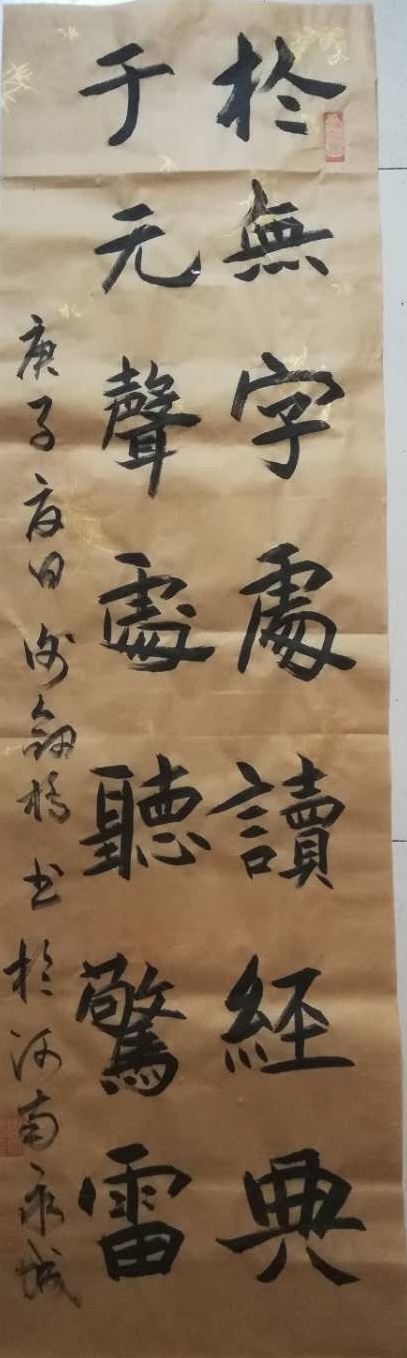 於無字處讀經典
于无聲處聽驚雷
庚子夏日 劍橋书於河南永城